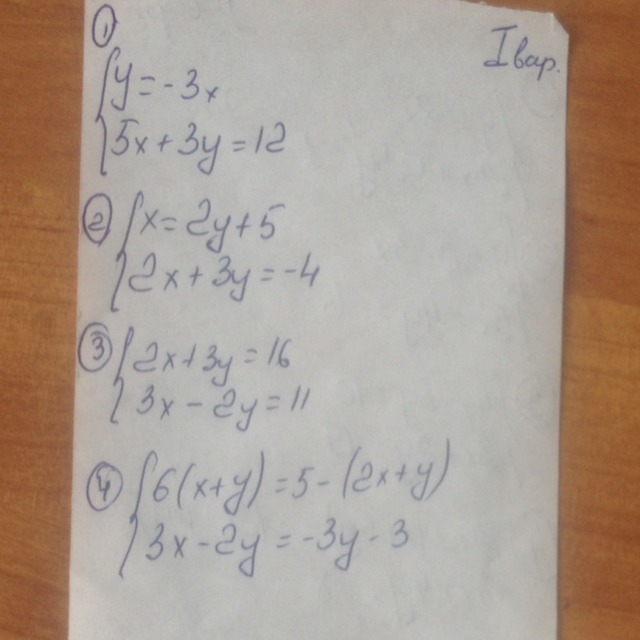 I вар.
①
{y = -3x
{5x + 3y = 12
② {x = 2y + 5
{2x + 3y = -4
③ {2x + 3y = 16
{3x - 2y = 11
④ {6(x+y) = 5 - (2x+y)
{3x - 2y = -3y - 3